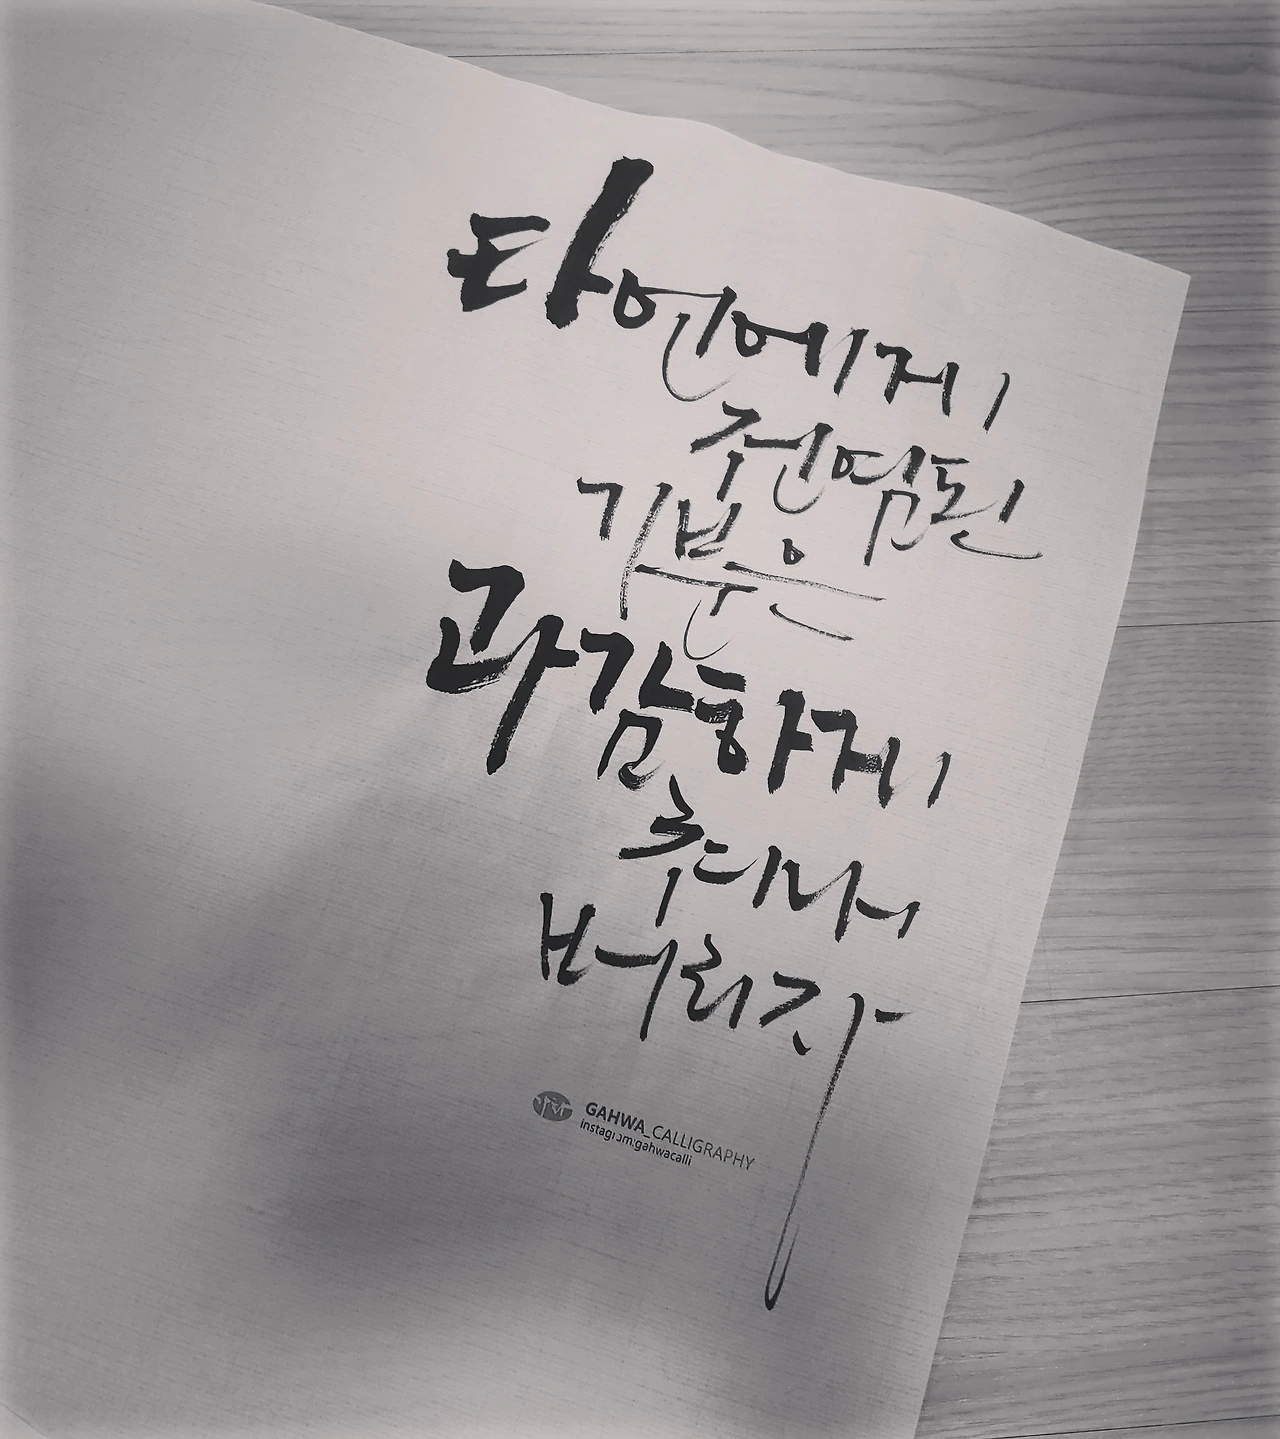 타인에게
전염된
기분은
과감하게
버리자
가화 GAHWA_CALLIGRAPHY
instagram:gahwacalli